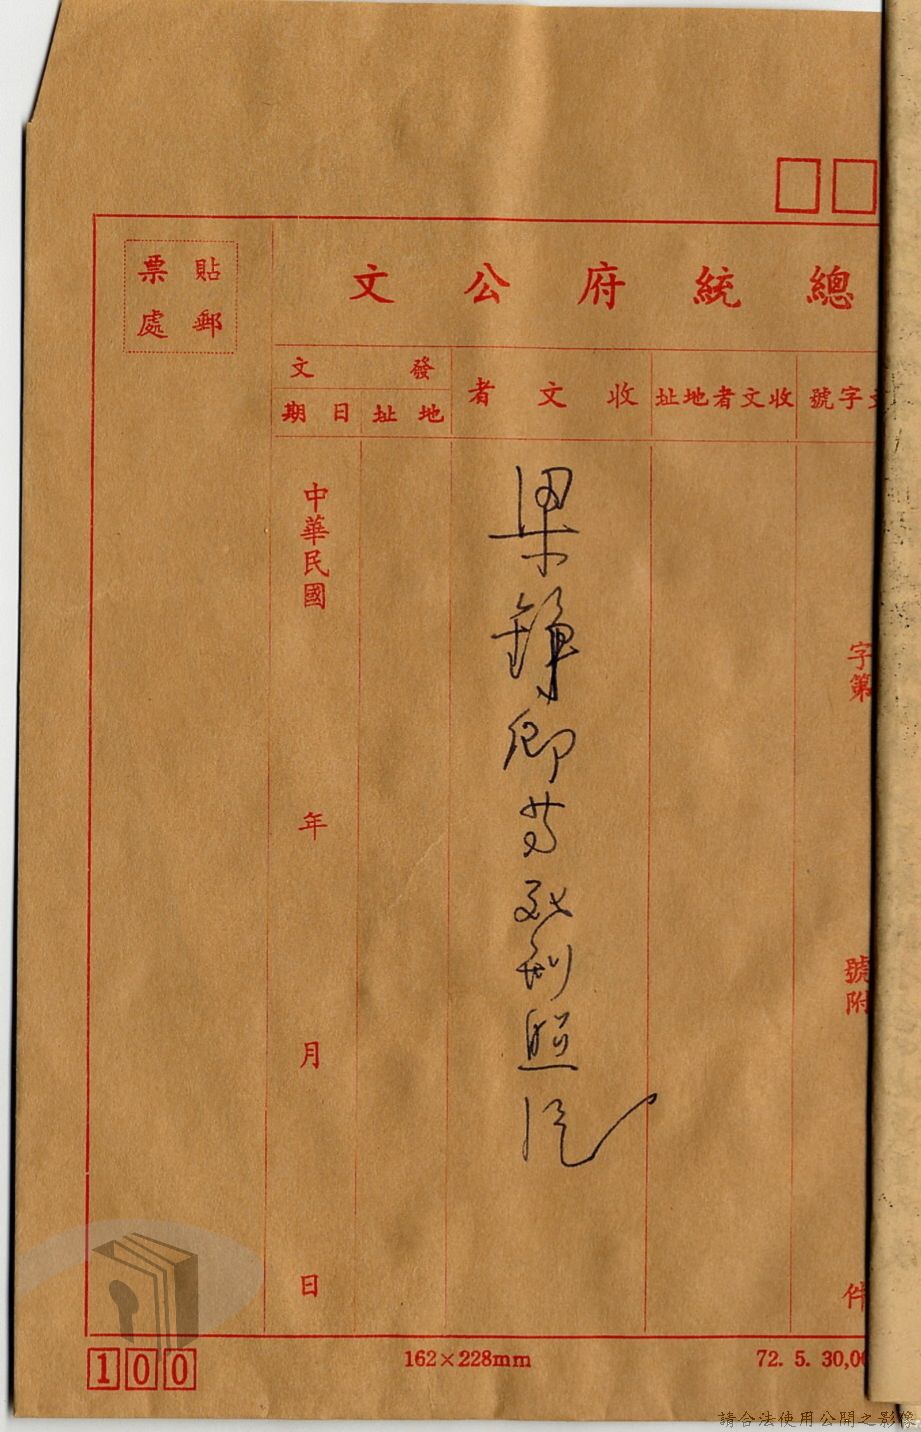 總統府公文
貼郵
票處
文字號
收文者地址
收文者
發文
地址
日期
字第
號附
件
梁錚卿
照
中華民國
年
月
日
100
162×228mm
72. 5. 30,00
請合法使用公開之影像